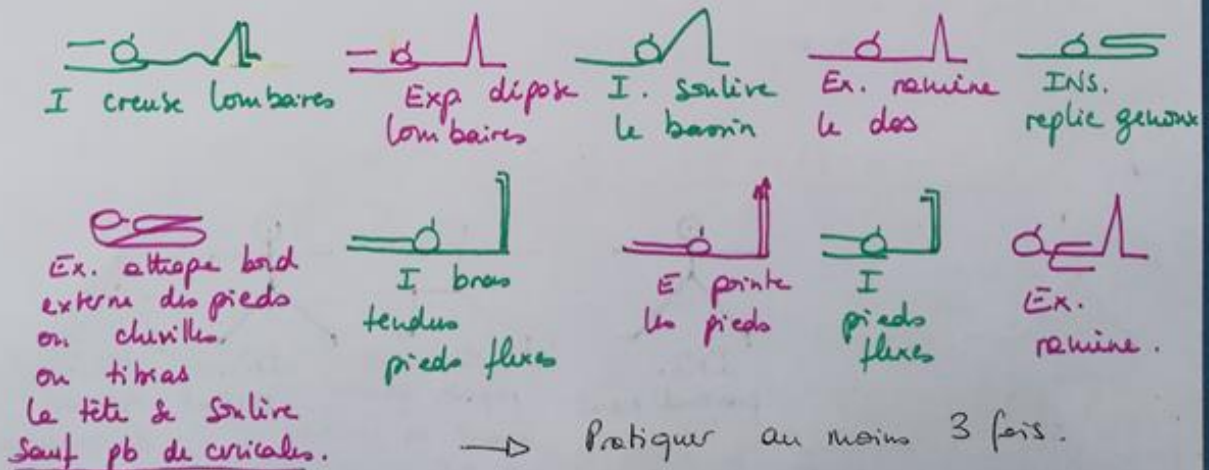 I creuse lombaires
Exp. dépose
lombaires
I. soulève
le bassin
Ex. ramène
le dos
INS.
replie genoux
Ex. attrape bord
externe des pieds
ou chevilles.
ou tibias
la tête se soulève
sauf pb de cervicales.
I bras
tendus
pieds flexes
E pointe
les pieds
I
pieds
flexes
Ex.
ramène.
→ Pratiquer au moins 3 fois.